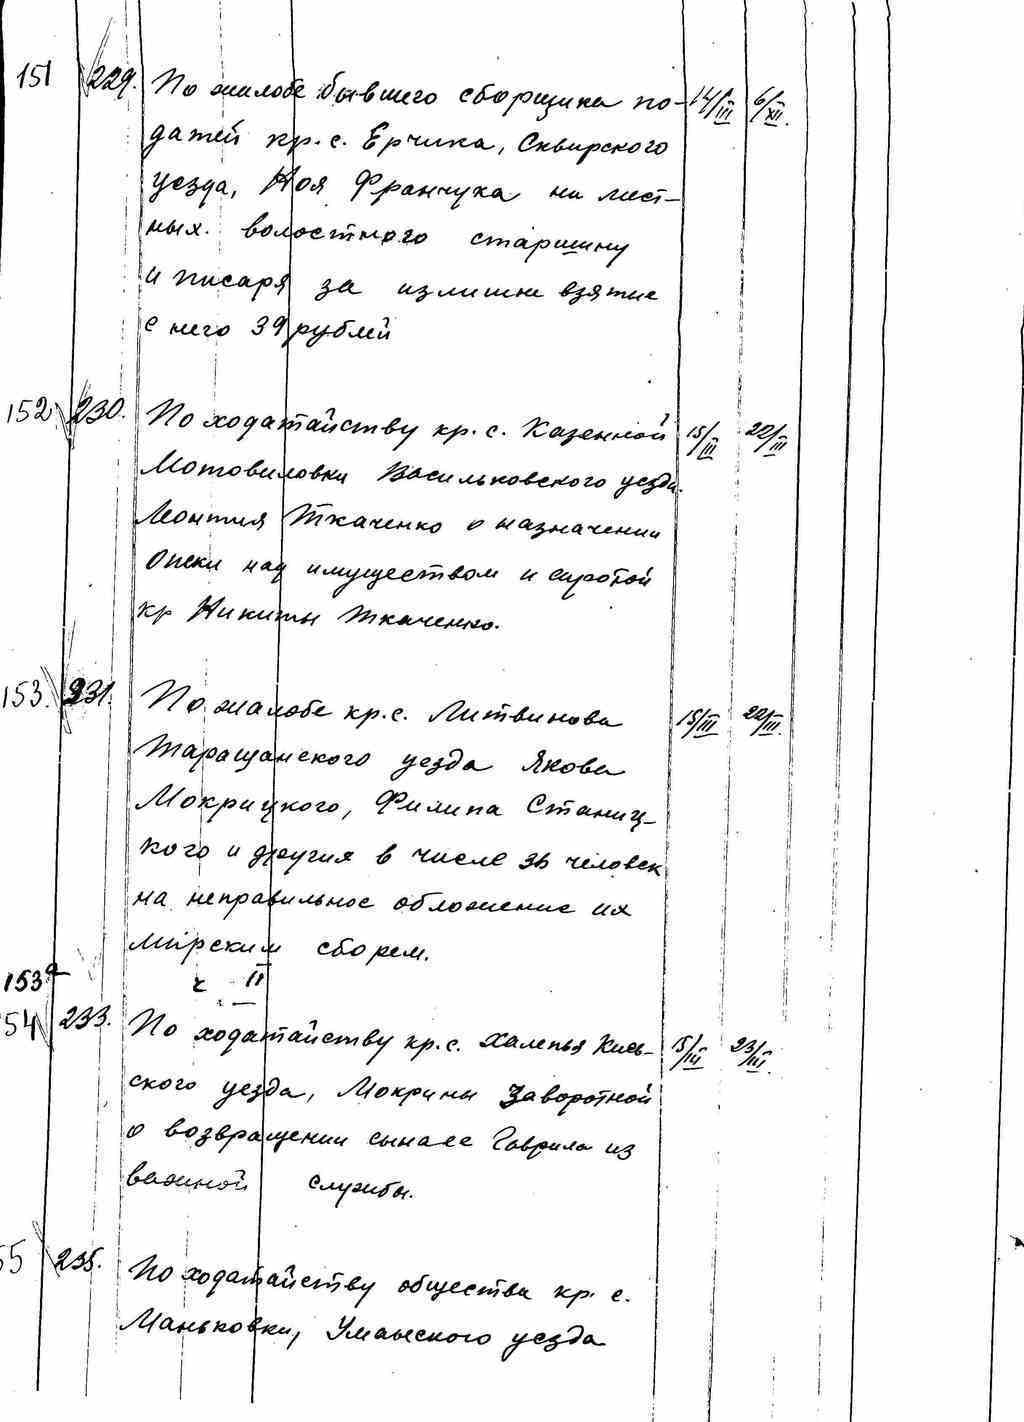 151 229. По жалобе бывшего сборщика по- 14/III 6/XII.
датей кр. с. Ерчика, Сквирского
уезда, Ноя Франчука на мест-
ных волостного старшину
и писаря за излишне взятие
с него 39 рублей
152 230. По ходатайству кр. с. Казенной 15/III 22/III
Мотовиловки Васильковского уезда.
Ткаченко о назначении
опеки над имуществом и сиротой
кр Никиты Ткаченко.
153. 231. По жалобе кр. с. Литвинова 15/III 22/III.
Таращанского уезда Якова
Мокрицкого, Филипа Станиц-
кого и другия в числе 36 человек
на неправильное обложение их
мирским сборем.
153а
ч II
54 233. По ходатайству кр. с. Халепья Киев- 15/III 23/III.
ского уезда, Мокрины Заворотной
о возвращении сына ее Гаврила из
военной службы.
55 235. По ходатайству общества кр. с.
Маньковки, Уманского уезда